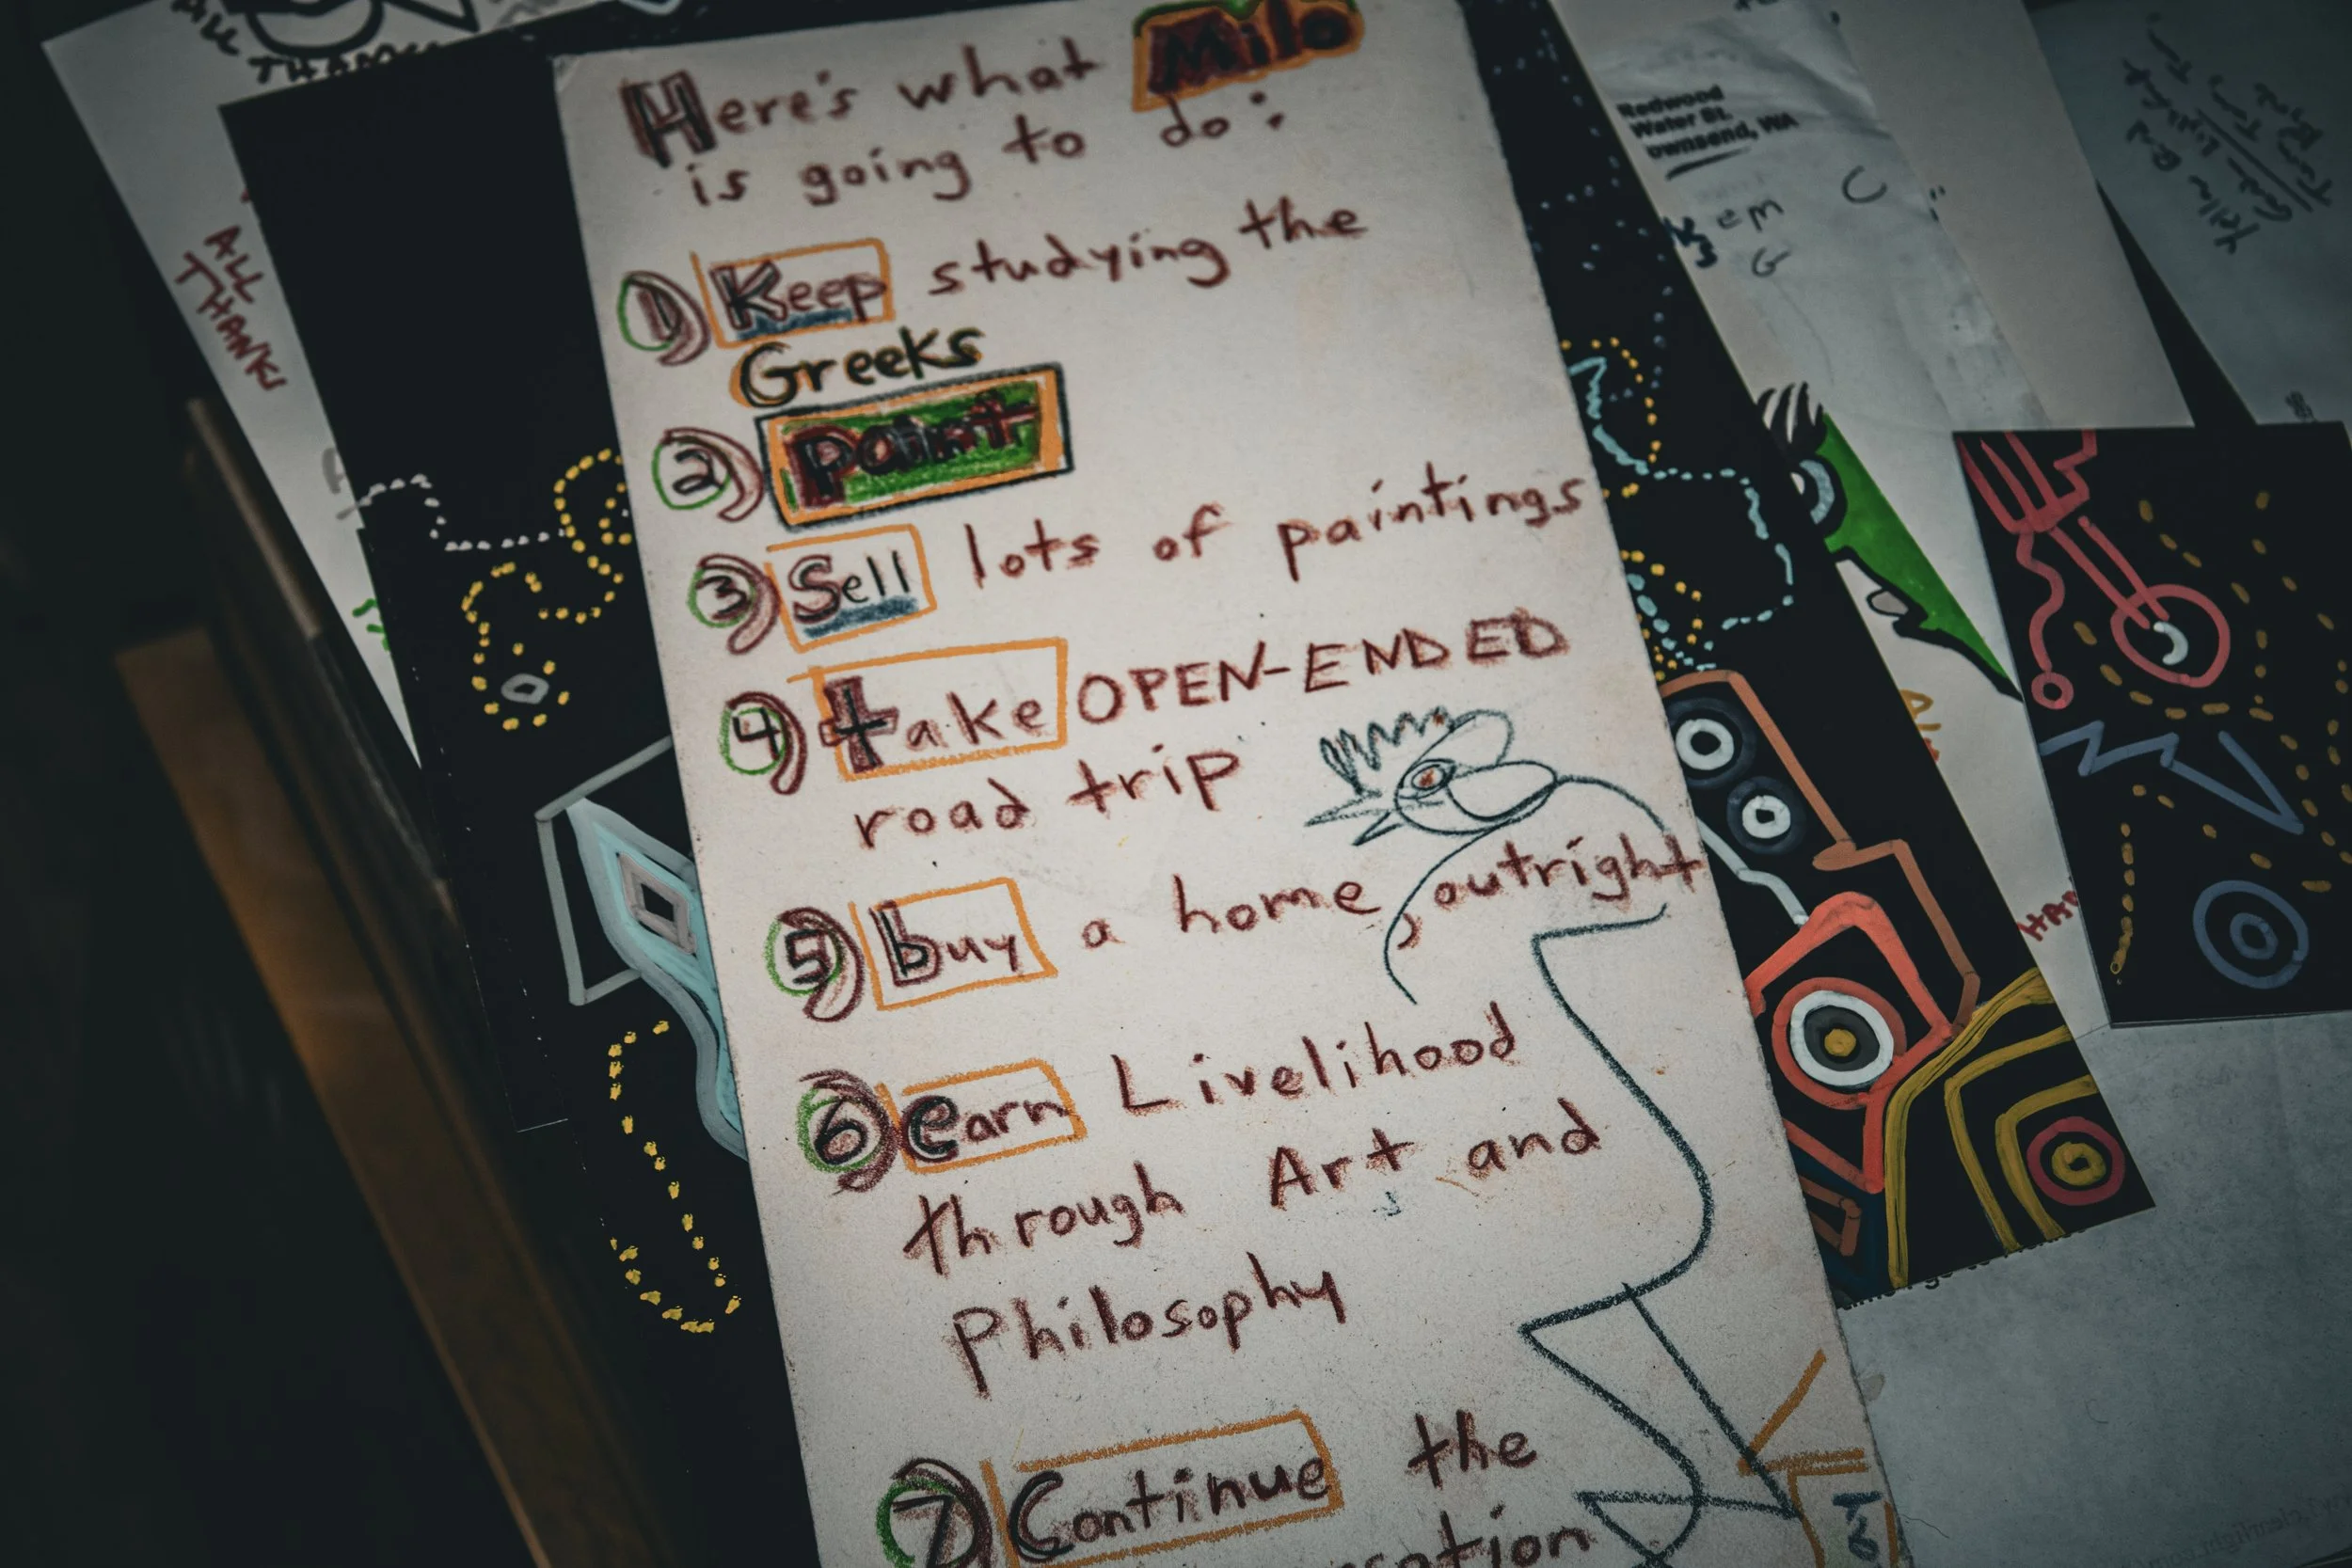 Here's what Milo
is going to do:
1) Keep studying the
Greeks
2) Paint
3) Sell lots of paintings
4) take OPEN-ENDED
road trip
5) buy a home, outright
6) earn Livelihood
through Art and
Philosophy
7) Continue the
ALL
THANK
Redwood
Water St.
ownsend, WA